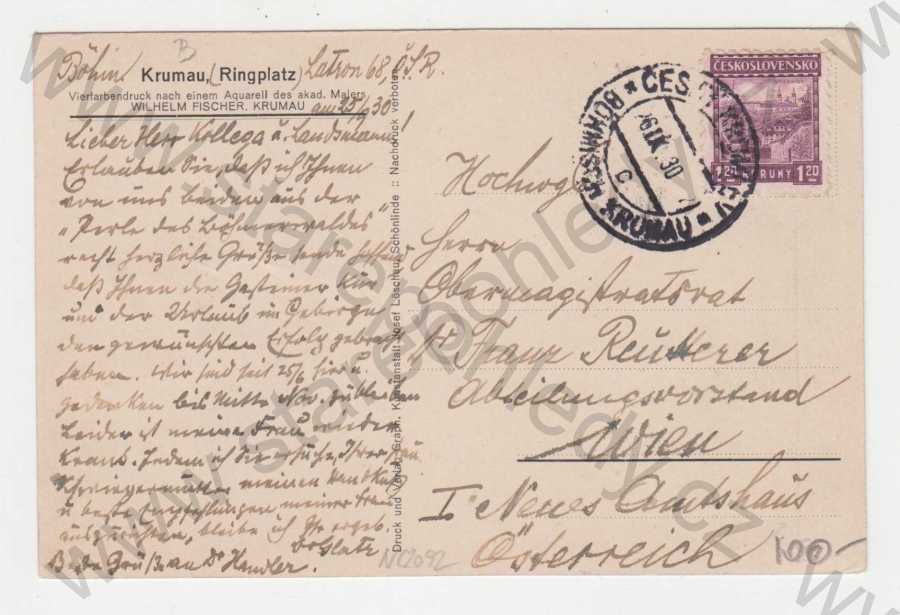 Böhm. Krumau, (Ringplatz) Latron 68, Č.S.R.
Vierfarbendruck nach einem Aquarell des akad. Malers
WILHELM FISCHER, KRUMAU
am 25/9 30
Lieber Herr Kollega u. Landsmann!
Erlauben Sie, daß ich Ihnen
von uns beiden aus der
"Perle des Böhmerwaldes"
recht herzliche Grüße sende
daß Ihnen die Gasteiner Kur
und der Urlaub im Gebirge
den gewünschten Erfolg gebracht
haben. Wir sind seit 25/6 hier u.
gedenken bis Mitte Nov. zu bleiben
Leider ist meine Frau wieder
krank. Indem ich Sie ersuche, Ihrer Frau
Schwiegermutter meinen Handkuß
u beste Empfehlungen meiner Frau
auszurichten, bleibe ich Ihr ergeb.
Glatz
Beide Grüße an Dr Handler.
Druck und Verlag: Graph. Kunstanstalt Josef Löschau, Schönlinde :: Nachdruck verboten
ČESKOSLOVENSKO
1.20 KORUNY 1.20
ČESKÝ KRUMLOV
BÖHMISCH KRUMAU
26.IX. 30
c
Hochwohlg
Herrn
Obermagistratsrat
Dr Franz Reutterer
Abteilungsvorstand
Wien
I Neues Amtshaus
Österreich
NC2092
100-
www.stare-pohledy.cz